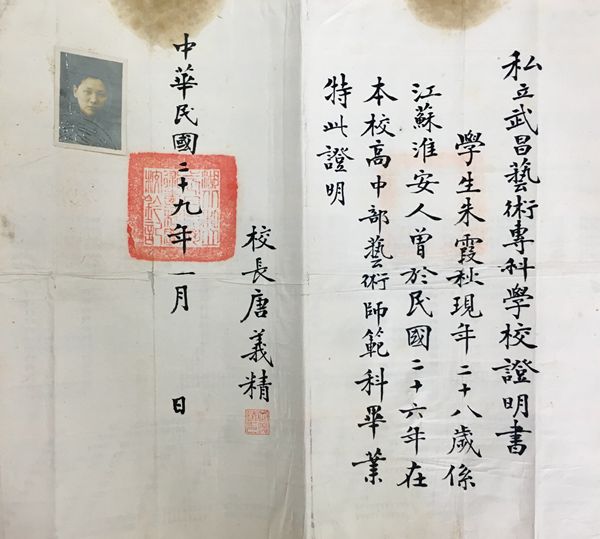 私立武昌藝術專科學校證明書
學生朱霞秋現年二十八歲係
江蘇淮安人曾於民國二十六年在
本校高中部藝術師範科畢業
特此證明
校長唐義精
中華民國二十九年一月 日